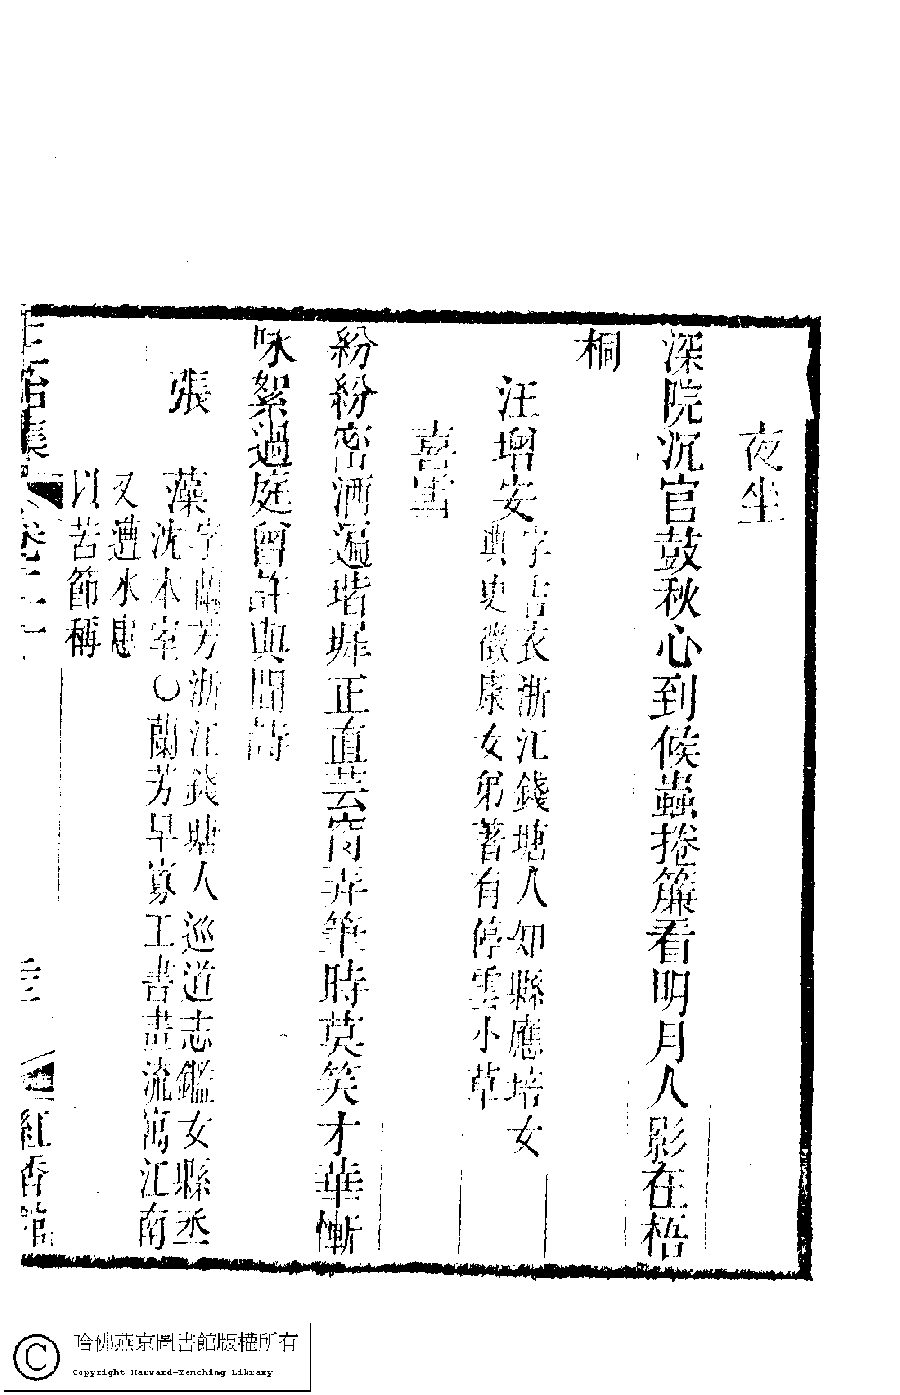 夜坐
深院沉官鼓秋心到候蟲捲簾看明月人影在梧
桐
汪增安
字吉衣浙江錢塘人知縣應培女
典史徵康女弟著有停雲小草
喜雪
紛紛密洒遍堦墀正直芸窗弄筆時莫笑才華慚
咏絮過庭曾許與聞詩
張 藻
字蘭芳浙江錢塘人巡道志鑑女縣丞
沈本室○蘭芳早寡工書畫流寓江南
又遭水患
以苦節稱
正始集 卷二十
紅香館
哈佛燕京圖書館版權所有
Copyright Harvard-Yenching Library